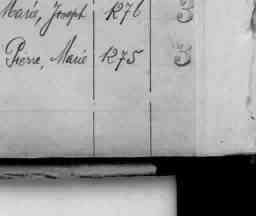 Marie, Joseph 1276 3
Pierre, Marie 1275 3